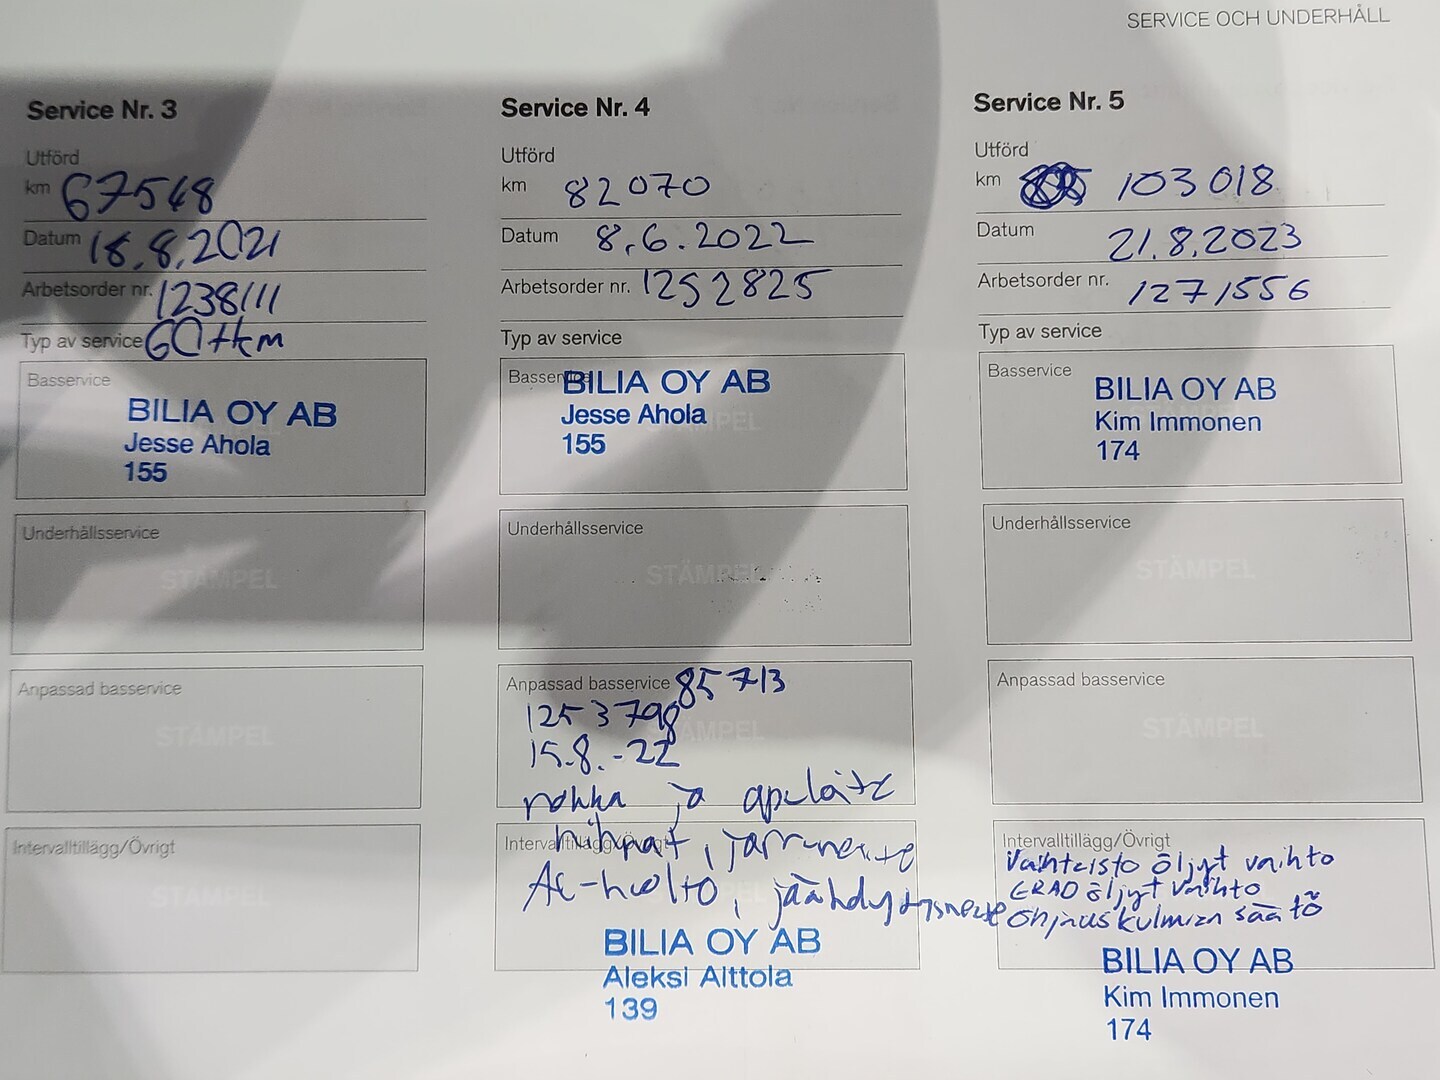 SERVICE OCH UNDERHÅLL
Service Nr. 3
Utförd
km 67548
Datum 18.8.2021
Arbetsorder nr. 1238111
Typ av service 60tkm
Basservice
BILIA OY AB
Jesse Ahola
155
Underhållsservice
STÄMPEL
Anpassad basservice
STÄMPEL
Intervalltillägg/Övrigt
STÄMPEL
Service Nr. 4
Utförd
km 82070
Datum 8.6.2022
Arbetsorder nr. 1252825
Typ av service
Basservice
BILIA OY AB
Jesse Ahola
155
Underhållsservice
STÄMPEL
Anpassad basservice 85713
1253798
STÄMPEL
15.8.-22
nokka ja apulaite
Intervalltillägg/Övrigt
hihnat, jarruneste
AC-huolto, jäähdytysneste
BILIA OY AB
Aleksi Aittola
139
Service Nr. 5
Utförd
km 103018
Datum 21.8.2023
Arbetsorder nr. 1271556
Typ av service
Basservice
BILIA OY AB
Kim Immonen
174
Underhållsservice
STÄMPEL
Anpassad basservice
STÄMPEL
Intervalltillägg/Övrigt
Vaihteisto öljyt vaihto
ERAD öljyt vaihto
ohjauskulmien säätö
BILIA OY AB
Kim Immonen
174